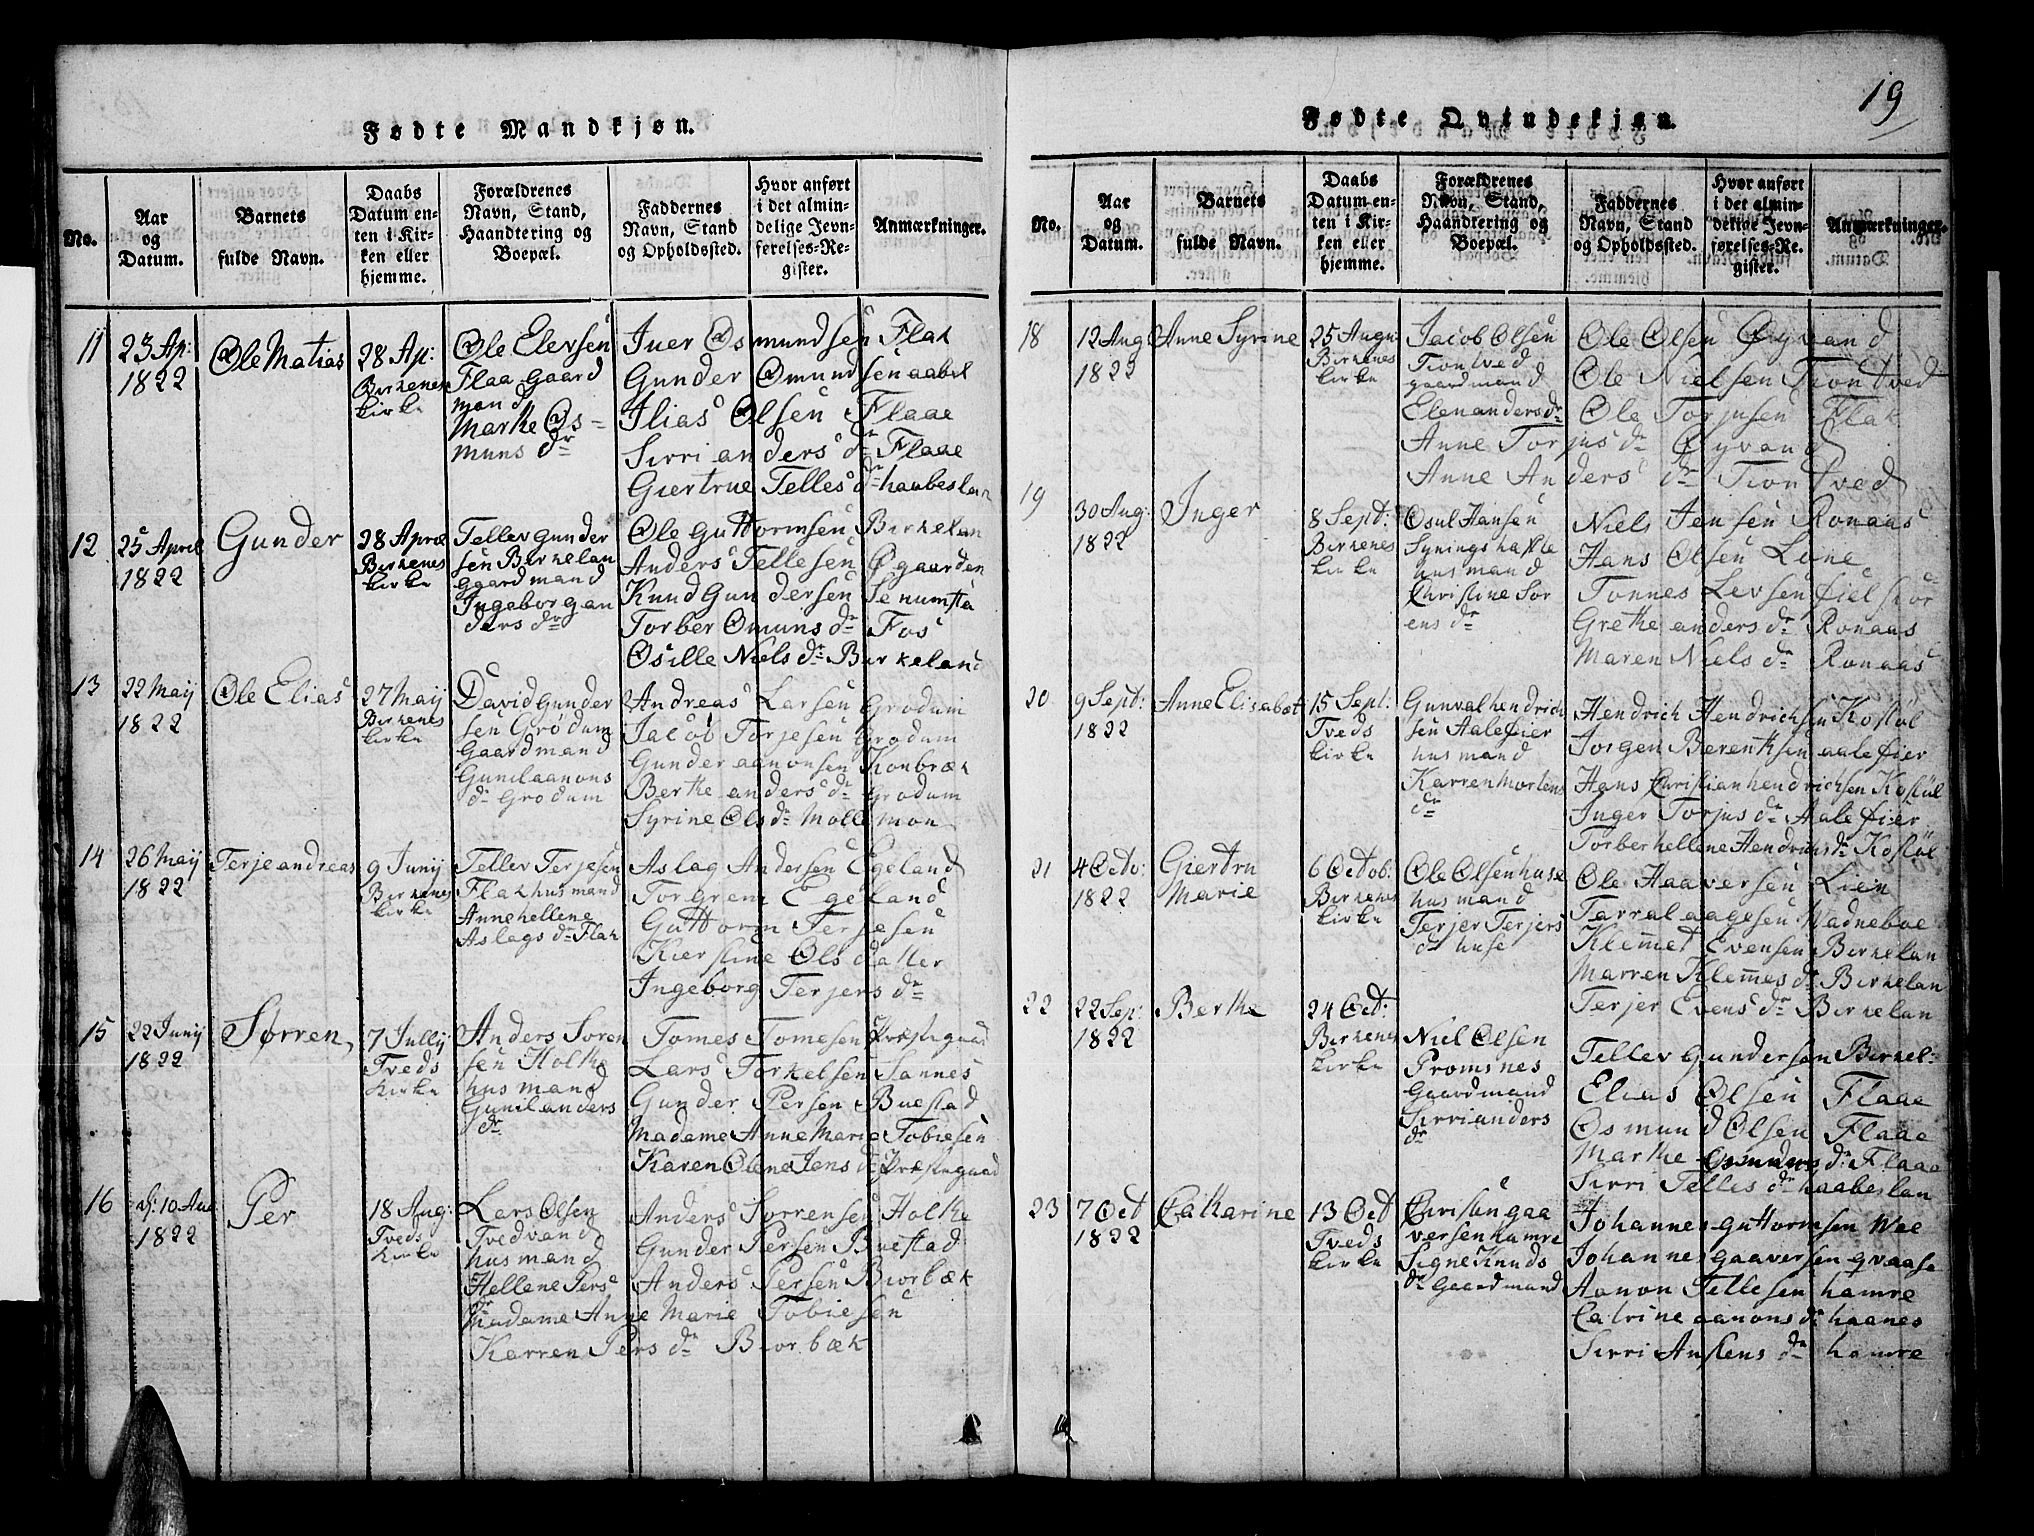 19
Fødte Mandkjøn.
No.
Aar
og
Datum.
Barnets
fulde Navn.
Daabs
Datum en-
ten i Kir-
ken eller
hjemme.
Forældrenes
Navn, Stand,
Haandtering og
Boepæl.
Faddernes
Navn, Stand
og Opholdssted.
Hvor anført
i det almin-
delige Jevn-
førelses-Re-
gister.
Anmærkninger.
11
23 Ap:
1822
Ole Matias
28 Ap:
Birkenes
kirke
Ole Elevsen
Flaa gaard
mand
Marthe Os-
muns dr
Iver Osmundsen Flak
Gunder Omundsen aabel
Ilias Olsen Flaae
Sirri anders dr Flaae
Giertrue Telles dr haabeslan
12
25 April
1822
Gunder
28 April
Birkenes
kirke
Tellev Gunder
sen Birkelan
gaardmand
Ingeborg an
ders dr
Ole Guttormsen Birkelan
Anders Tellesen Øgaarden
Knud Gundersen Senumsta
Torber Omuns dr Fos
Osille Niels dr Birkeland
13
22 Maij
1822
Ole Elias
27 Maij
Birkenes
kirke
David Gunder
sen Grødum
Gaardmand
Gunil aanons
dr Grodum
Andreas Larsen Grodum
Jacob Torjesen Grodum
Gunder aanonsen Konbræk
Berthe anders dr Grodum
Syrine Ols dr Mollemon
14
26 Maij
1822
Terje andreas
9 Junij
Birkenes
kirke
Tellev Terjesen
Flak husmand
Anne hellene
Aslags dr Flak
Aslag Andersen Egeland
Torgrem Egeland
Guttorm Terjesen
Kierstine Olsdatter
Ingeborg Terjers dr
15
22 Junij
1822
Sørren
7 Jullij
Tveds
kirke
Anders Soren
sen Holthe
husmand
Gunil anders
dr
Tomes Tomesen Præstegaad
Lars Torkelsen Sannes
Gunder Persen Buestad
Madame Anne Marie Tobiesen
Karen Olene Jens dr Præstegaad
16
d: 10 Au
1822
Per
18 Aug:
Tveds
kirke
Lars Olsen
Tvedvand
husmand
Hellene Pers
dr
Anders Sørrensen Holthe
Gunder Persen Buestad
Anders Persen Biorbæk
Madame Anne Marie Tobiesen
Karren Pers dr Biorbæk
Fødte Qvindekjøn.
No.
Aar
og
Datum.
Barnets
fulde Navn.
Daabs
Datum en-
ten i Kir-
ken eller
hjemme.
Forældrenes
Navn, Stand,
Haandtering og
Boepæl.
Faddernes
Navn, Stand
og Opholdssted.
Hvor anført
i det almin-
delige Jevn-
førelses-Re-
gister.
Anmærkninger.
18
12 Aug
1822
Anne Syrine
25 Augu
Birkenes
kirke
Jacob Olsen
Tiontved
gaardmand
Elen anders dr
Ole Olsen Øyvand
Ole Nielsen Tiontved
Ole Torjusen Flak
Anne Torjus dr Øyvand
Anne Anders dr Tiontved
19
30 Aug:
1822
Inger
8 Sept:
Birkenes
kirke
Osul Hansen
Synings hastle
husmand
Christine Sor
ens dr
Niels Jensen Ronaas
Hans Olsen Leine
Tonnes Levsen
Grethe anders dr Ronaas
Maren Niels dr Ronaas
20
9 Sept:
1822
Anne Elisabet
15 Sept:
Tveds
kirke
Gunval hendrich
sen Aalefier
husmand
Karren Mortens
dr
Hendrich Hendrichsen Kostøl
Jorgen Berentsen aalefier
Hans Christian hendrichsen Kostøl
Inger Torjus dr Aalefier
Torber hellene Hendrichs dr Kostøl
21
4 Octo:
1822
Giertru
Marie
6 Octob:
Birkenes
kirke
Ole Olsen huse
husmand
Terjer Terjers
dr huse
Ole Haaversen Lien
Tarral aagesen Vadneboe
Klemmet Evensen Birkelan
Marren Klemmes dr Birkelan
Terjer Evens dr Birkelan
22
22 Sep:
1822
Berthe
24 Oct:
Birkenes
kirke
Niel Olsen
Promsnes
Gaardmand
Sirri anders
dr
Tellev Gundersen Birkel:
Elias Olsen Flaae
Osmund Olsen Flaae
Marthe Osmunns dr Flaae
Sirri Telles dr haabeslan
23
7 Oct
1822
Catharine
13 Oct
Tveds
kirke
Chrisen gaa
versen hamre
Signe Knuds
dr Gaardmand
Johannes Guttormsen Wee
Johannes gaaversen qvaase
Aanon Tellesen hamre
Catrine aanons dr haanes
Sirri Anstens dr hamre